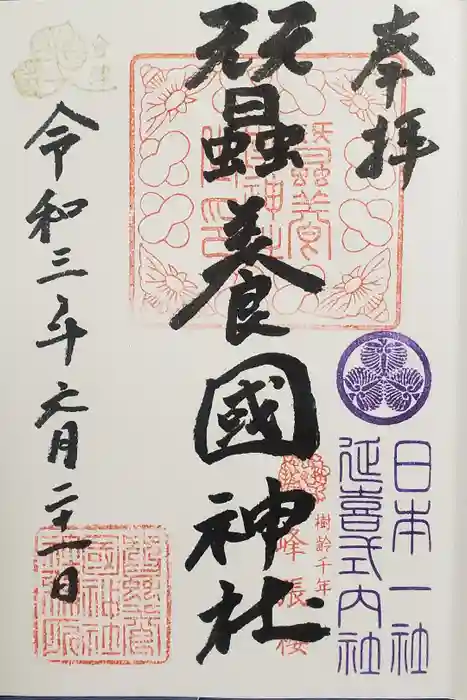 奉拝
日本一社
延喜式内社
蠶養國神社
樹齢千年
峰張桜
令和三年六月二十一日
会津